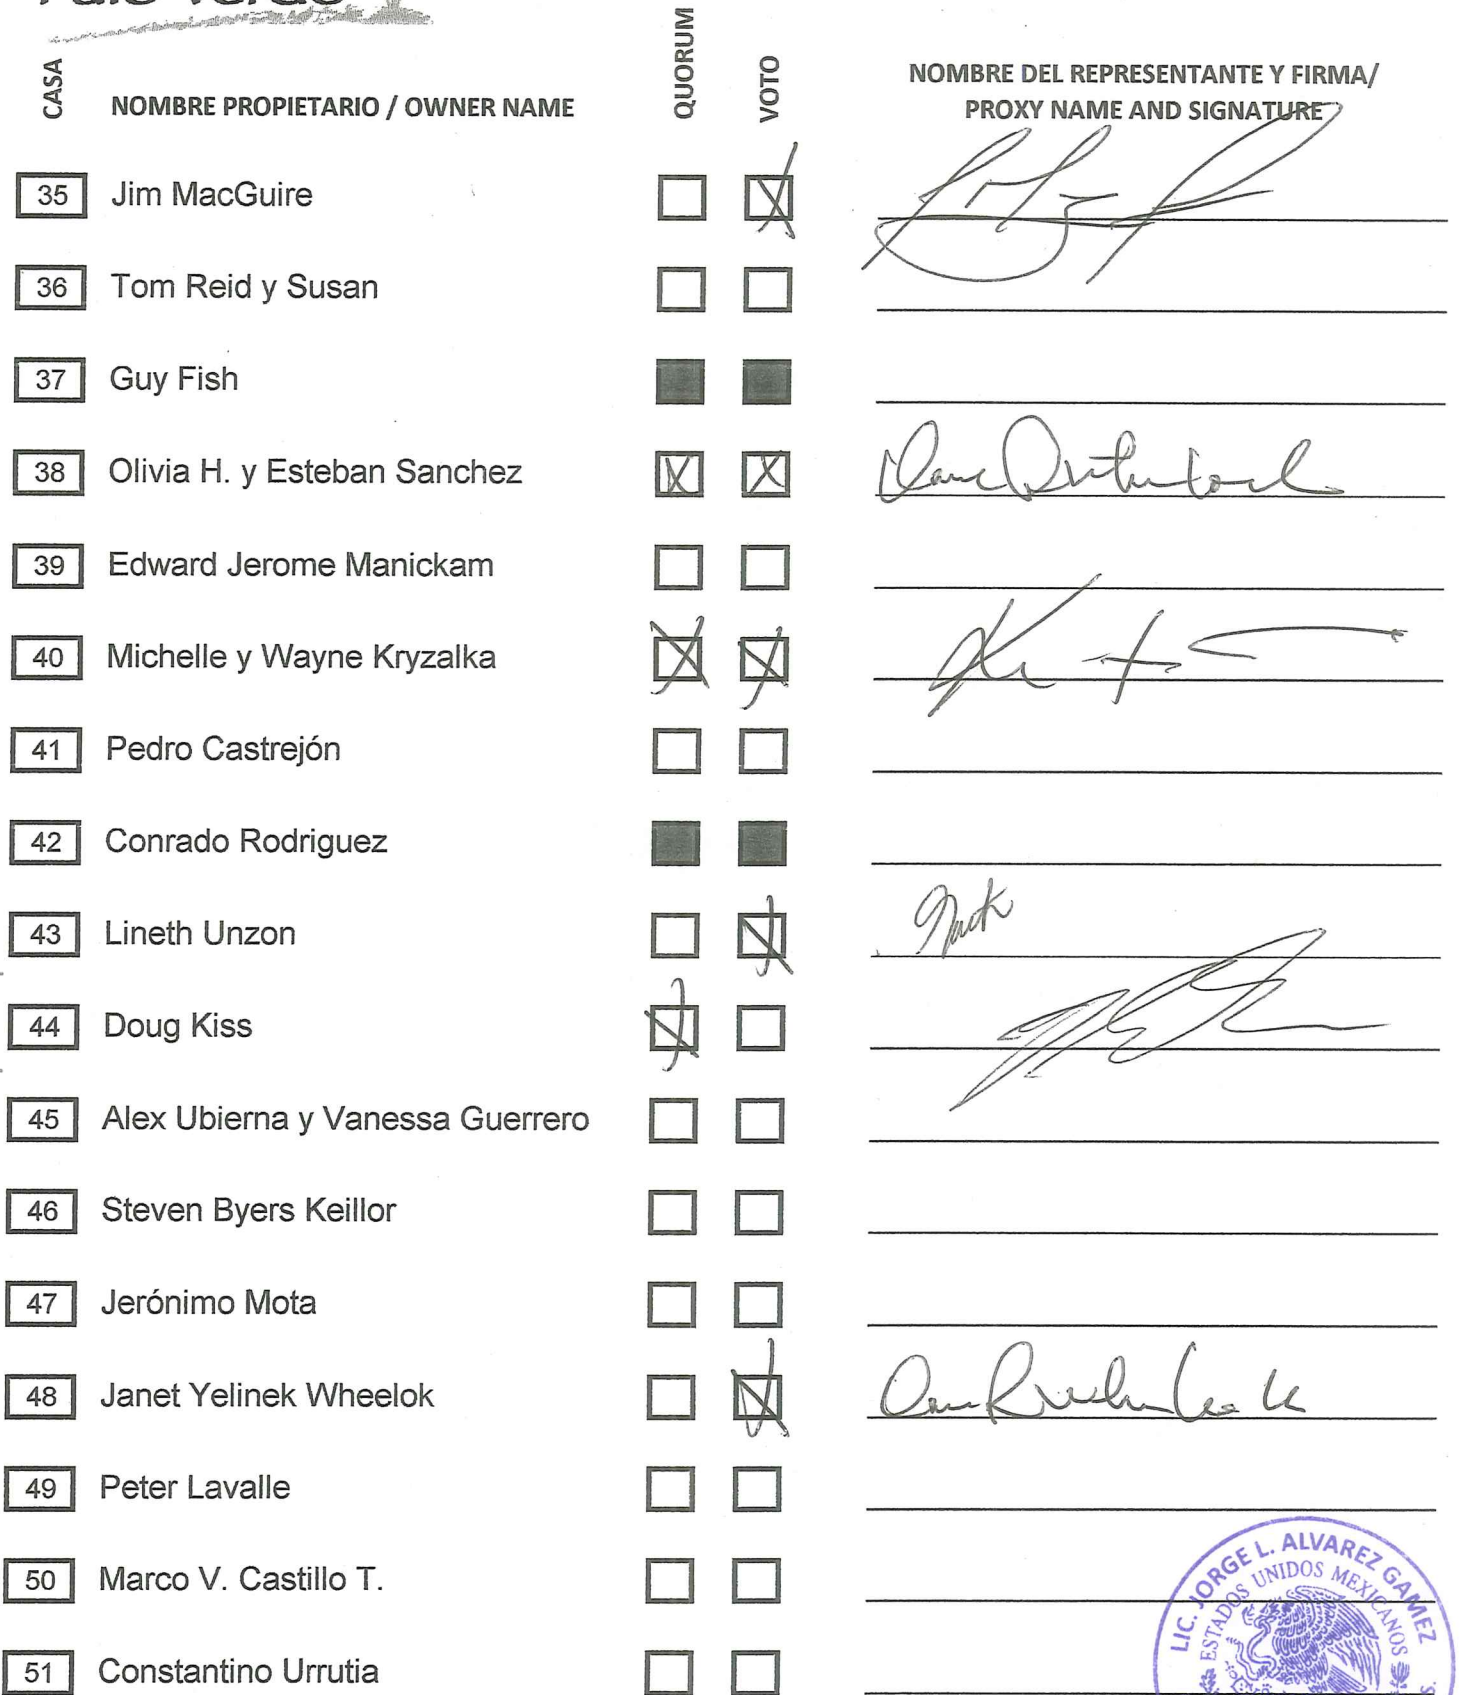 Palo Verde
CASA
NOMBRE PROPIETARIO / OWNER NAME
QUORUM
VOTO
NOMBRE DEL REPRESENTANTE Y FIRMA/
PROXY NAME AND SIGNATURE
35 Jim MacGuire
36 Tom Reid y Susan
37 Guy Fish
38 Olivia H. y Esteban Sanchez
39 Edward Jerome Manickam
40 Michelle y Wayne Kryzalka
41 Pedro Castrejón
42 Conrado Rodriguez
43 Lineth Unzon
44 Doug Kiss
45 Alex Ubierna y Vanessa Guerrero
46 Steven Byers Keillor
47 Jerónimo Mota
48 Janet Yelinek Wheelok
49 Peter Lavalle
50 Marco V. Castillo T.
51 Constantino Urrutia
LIC. JORGE L. ALVAREZ GAMEZ
ESTADOS UNIDOS MEXICANOS